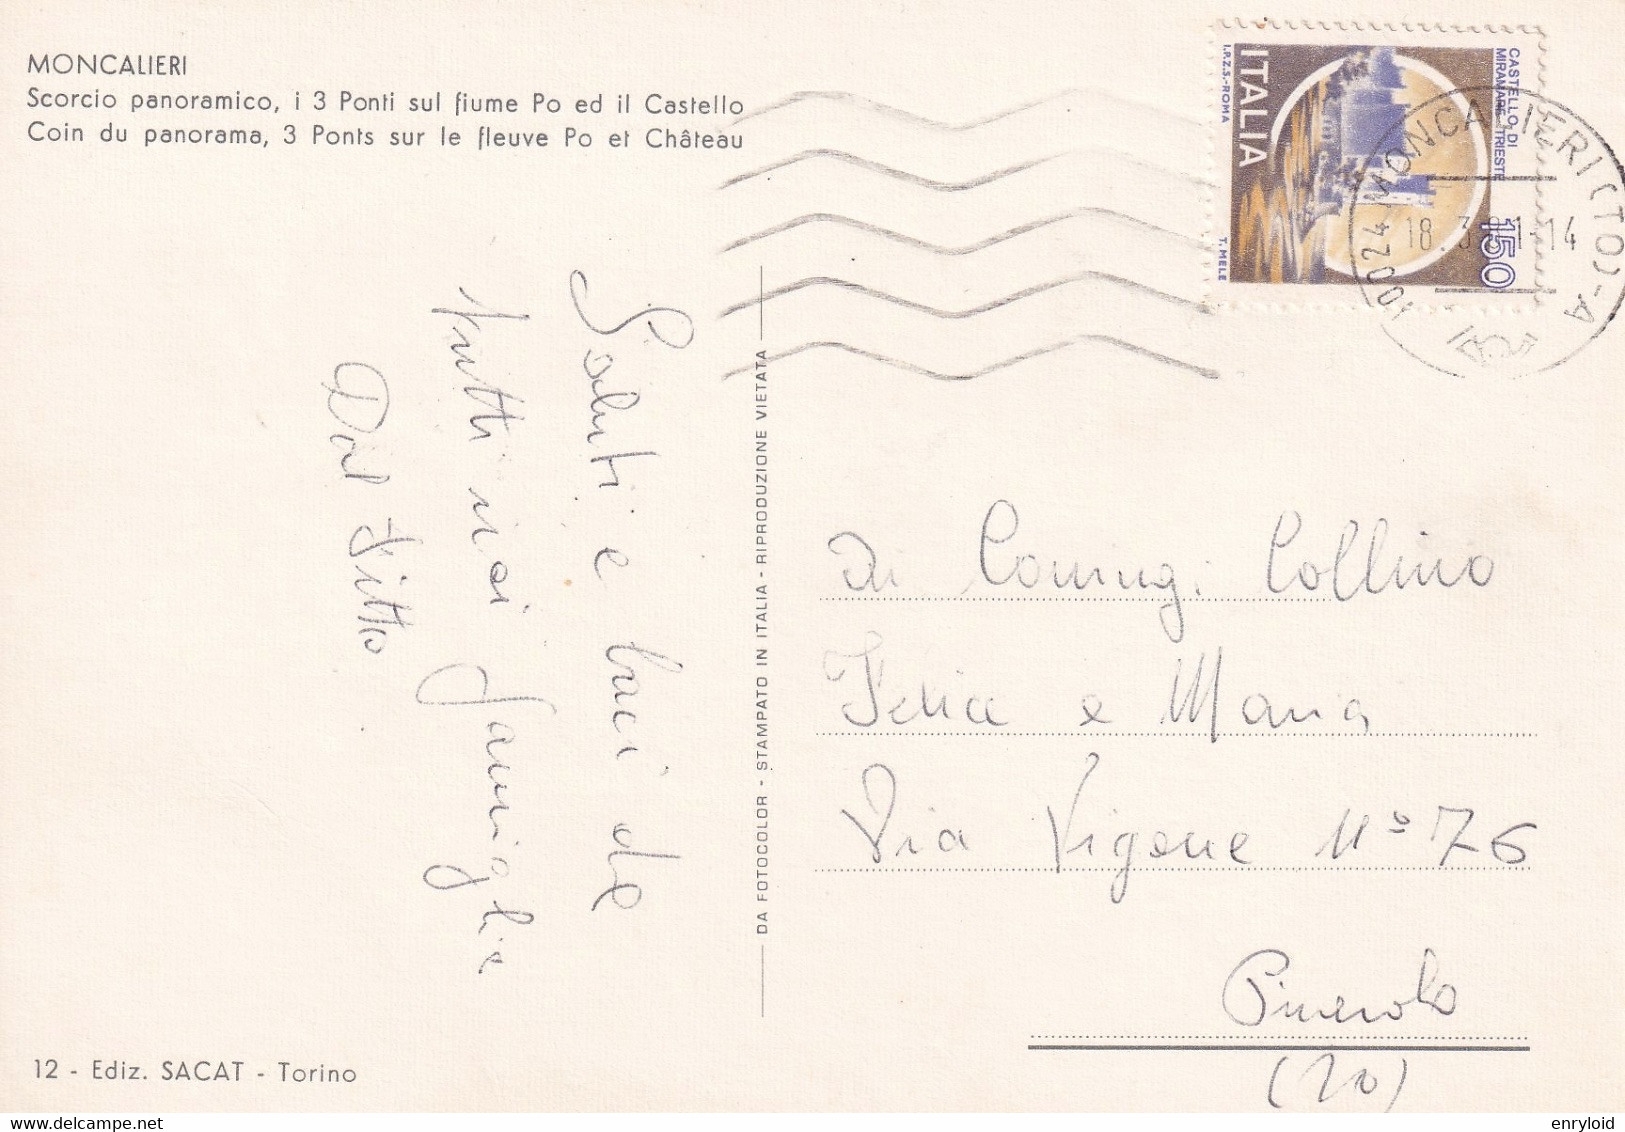 MONCALIERI
Scorcio panoramico, i 3 Ponti sul fiume Po ed il Castello
Coin du panorama, 3 Ponts sur le fleuve Po et Château
ITALIA
I.P.Z.S.-ROMA
T. MELE
CASTELLO DI
MIRAMARE-TRIESTE
150
10024 MONCALIERI (TO)-A
18.3.81-14
Saluti e baci da
tutti noi famiglia
Dal Fitto
DA FOTOCOLOR - STAMPATO IN ITALIA - RIPRODUZIONE VIETATA
Coniugi Collino
Felice e Maria
Via Vigone N° 76
Pinerolo
(To)
12 - Ediz. SACAT - Torino
enryloid